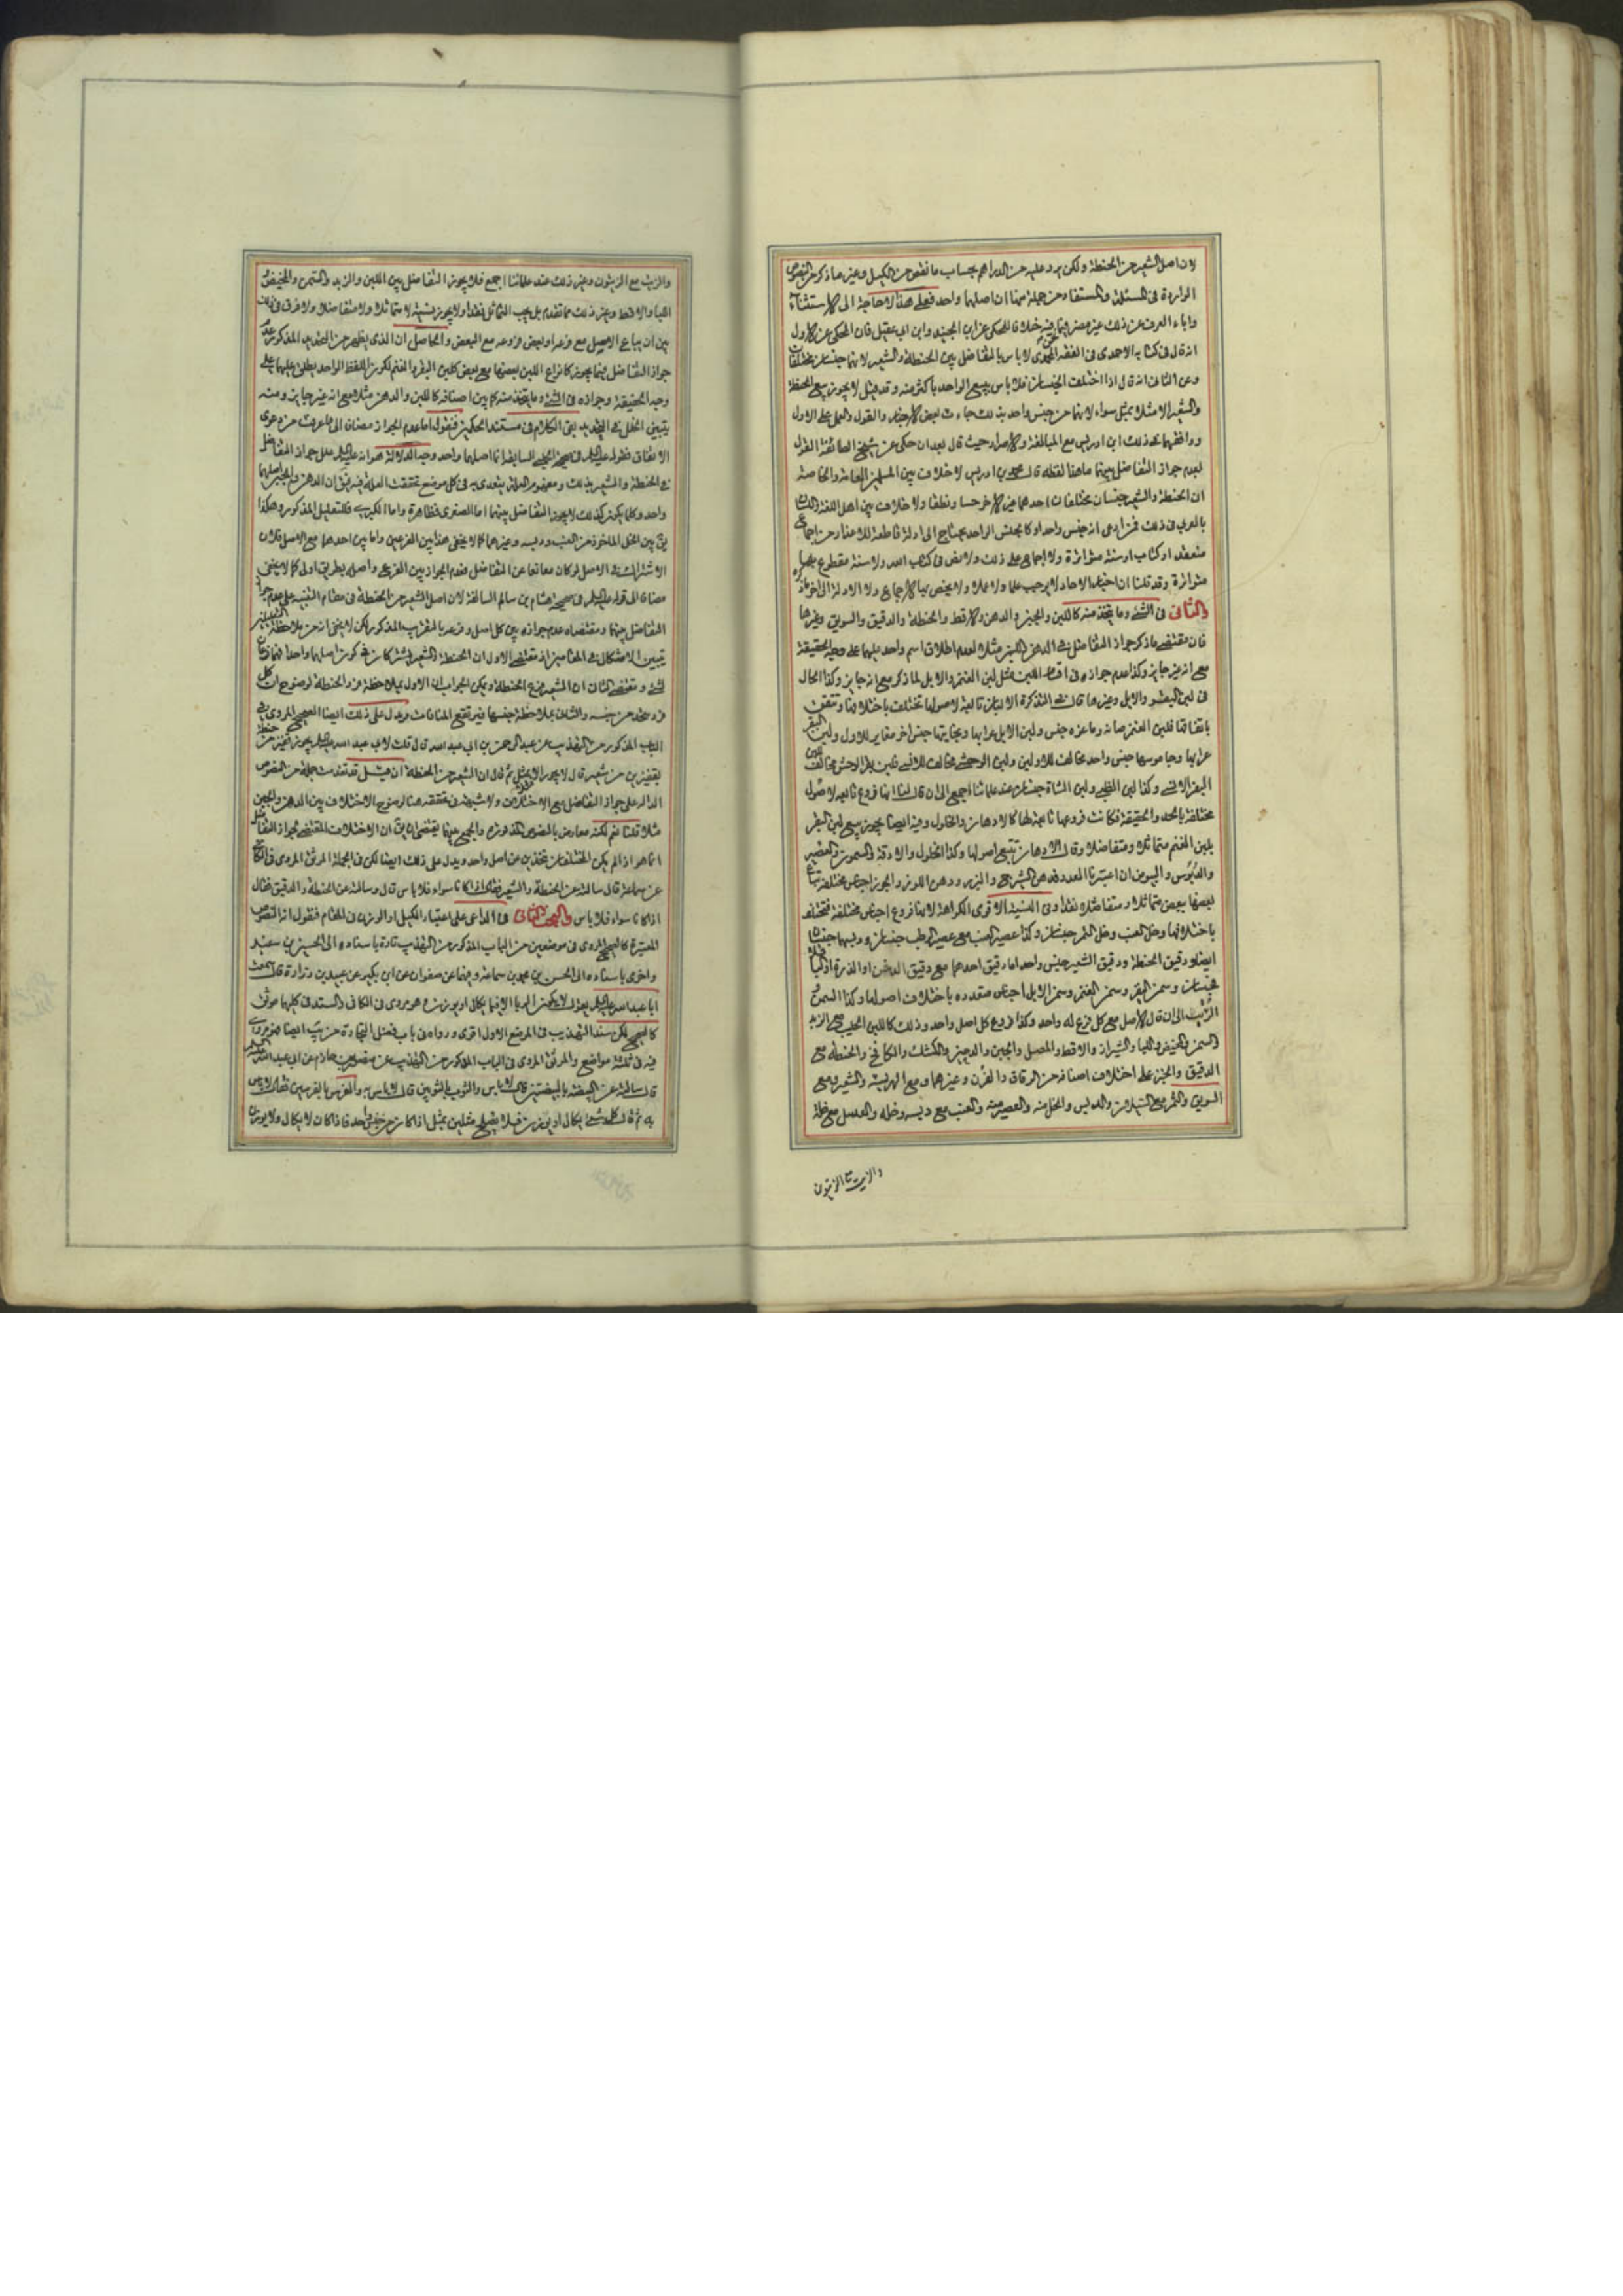 لان اصل الشعير من الحنطة ولكن يرد عليه من الدراهم بحساب ما نقص من الكيل وغير ما ذكر من النصوص
الواردة فى المسئلة والمستفاد من جملة منها ان اصلهما واحد فعلى هذا لا حاجة الى الاستثناء
واباء العرف عن ذلك غير مضر فيما فيه خلافا للمحكى عن ابن الجنيد وابن ابى عقيل فان المحكى عن الاول
انه قال فى كتابه الاحمدى فى الفقه المحمدى لا باس بالتفاضل بين الحنطة والشعير لانهما جنسان مختلفان
وعن الثانى انه قال اذا اختلف الجنسان فلا باس ببيع الواحد باكثر منه وقد قيل لا يجوز بيع الحنطة
والشعير الا مثلا بمثل سواء لانهما من جنس واحد بذلك جاءت بعض الاخبار والقول والعمل على الاول
ووافقهما على ذلك ابن ادريس مع المبالغة والاصرار حيث قال بعد ان حكى عن شيخى الطائفة القول
بعدم جواز التفاضل بينهما ما هذا لفظه قال محمد بن ادريس لا خلاف بين المسلمين العامة والخاصة
ان الحنطة والشعير جنسان مختلفان احدهما غير الاخر حسا ونطقا ولا خلاف بين اهل اللغة واللسان
بالعربى فى ذلك فمن ادعى انه جنس واحد او كالجنس الواحد يحتاج الى ادلة قاطعة للاعذار من اجماع
منعقد او كتاب او سنة متواترة ولا اجماع على ذلك ولا نص فى كتاب الله ولا سنة مقطوع بها
متواترة وقد قلنا ان اخبار الاحاد لا يوجب علما ولا عملا ولا يخص بها الاجماع ولا الادلة الى اخر ما ذكره
والثانى فى الشئ وما يتخذ منه كاللبن والجبن والدهن والاقط والحنطة والدقيق والسويق وغيرها
فان مقتضى ما ذكر جواز التفاضل فى الدهن واللبن مثلا لعدم اطلاق اسم واحد عليهما على وجه الحقيقة
مع انه غير جايز وكذا عدم جوازه فى اقسام اللبن مثل لبن الغنم والابل لما ذكر مع انه جايز وكذا الحال
فى لبن البقر والابل وغيرها قال فى التذكرة الالبان تابعة لاصولها تختلف باختلافها وتتفق
باتفاقها فلبن الغنم ضانه وماعزه جنس ولبن الابل عرابها وبخاتيها جنس اخر مغاير للاول ولبن البقر
عرابها وجاموسها جنس واحد مخالف للاولين ولبن الوحشى مخالف للانسى فلبن بقر الوحش مخالف للبن
البقر الانسى وكذا لبن الظبى ولبن الشاة جنسان عند علمائنا اجمع الى ان قال لنا انها فروع تابعة لاصول
مختلفة بالحد والحقيقة فكانت فروعها تابعة لها كالادهان والخلول وفيه ايضا يجوز بيع لبن البقر
بلبن الغنم متماثلا ومتفاضلا وقال الادهان تتبع اصولها وكذا الخلول والادقة والسمون والعصير
والدبوس والبيوض ان اعتبرنا المعدود فدهن الشيرج والبزر ودهن اللوز والجوز اجناس مختلفة يباع
بعضها ببعض متماثلا ومتفاضلا نقدا وفى النسية الاقوى الكراهة لانها فروع اجناس مختلفة فتختلف
باختلافها وخل العنب وخل التمر جنسان وكذا عصير العنب مع عصير الرطب جنسان ودبسهما جنسان
ايضا ودقيق الحنطة ودقيق الشعير جنس واحد اما دقيق احدهما مع دقيق الدخن او الذرة
فجنسان وسمن البقر وسمن الغنم وسمن الابل اجناس متعدده باختلاف اصولها وكذا السمن
الزيت الى ان قال الاصل مع كل فرع له واحد وكذا فروع كل اصل واحد وذلك كاللبن الحليب مع الزبد
والسمن والمخيض واللبا والشيراز والاقط والمصل والجبن والترجين والكشك والكامخ والحنطة مع
الدقيق والخبز على اختلاف اصنافه من الرقاق والفرن وغيرهما ومع الهريسة والشعير مع
السويق والتمر مع السيلان والدبس والخل منه والعصير منه والعنب مع دبسه وخله والعسل مع خله
والزيت مع الزيتون
والزيت مع الزيتون وغير ذلك عند علمائنا اجمع فلا يجوز التفاضل بين اللبن والزبد والسمن والمخيض
اللبا والاقط وغير ذلك مما تقدم بل يجب التماثل نقدا ولا يجوز نسية لا متماثلا ولا متفاضلا ولا فرق فى ذلك
بين ان يباع الاصيل مع فرعه او بعض فروعه مع البعض والحاصل ان الذى يظهر من التحديد المذكور عدم
جواز التفاضل فيما يجوز كانواع اللبن بعضها مع بعض كلبن البقر والغنم لكون اللفظ الواحد يطلق عليهما على
وجه الحقيقة وجوازه فى الشئ وما يتخذ منه كما بين اصنافه كاللبن والدهن مثلا مع انه غير جايز ومنه
يتبين الخلل فى التحديد بقى الكلام فى مستند الحكمين فنقول اما عدم الجواز مضافا الى ما عرفت من دعوى
الاتفاق فقوله عليه السلام فى صحيح الحلبى السابق انما اصلهما واحد وجه الدلالة هو انه عليه السلام علل جواز التفاضل
فى الحنطة والشعير بذلك ومفهوم العلة يتعدى به فى كل موضع تحققت العلة فيه فيق ان الدهن والجبن اصلهما
واحد وكلما يكون كذلك لا يجوز التفاضل بينهما اما الصغرى فظاهرة واما الكبرى فللتعليل المذكور وهكذا
يق بين الخل الماخوذ من العنب ودبسه وغيرهما كما لا يخفى هذا بين الفرعين واما بين احدهما مع الاصل فلان
الاشتراك فى الاصل لو كان مانعا عن التفاضل فعدم الجواز بين الفرع واصله بطريق اولى كما لا يخفى
مضافا الى قوله عليه السلام فى صحيح هشام بن سالم السالفة لان اصل الشعير من الحنطة فى مقام التنبيه على عدم جواز
التفاضل بينهما ومقتضاه عدم جوازه بين كل اصل وفرعه بالتقريب المذكور لكن لا يخفى انه من ملاحظة التعليلين
تبين الاشكال فى المقامين اذ مقتضى الاول ان الحنطة والشعير يشتركان فى كون اصلهما واحدا فهما فرعان
لشئ ومقتضى الثانى ان الشعير فرع الحنطة ويمكن الجواب ان الاول بملاحظة فرد الحنطة لوضوح ان كل
فرد متحد من جنسه والثانى بملاحظة جنسها فيرتفع المنافات ويدل على ذلك ايضا الصحيح المروى فى
الباب المذكور من التهذيب عن عبد الرحمن بن ابى عبد الله قال قلت لابى عبد الله عليه السلام يجوز قفيز من حنطة
بقفيزين من شعير قال لا يجوز الا مثلا بمثل ثم قال ان الشعير من الحنطة ان قيل قد تقدمت جملة من النصوص
الدالة على جواز التفاضل مع الاختلاف ولا شبهة فى تحققه هنا لوضوح الاختلاف بين الدهن والجبن
مثلا قلنا نعم لكنه معارض بالنصوص المذكورة والجمع بينهما يقتضى ان يق ان الاختلاف المقتضى لجواز التفاضل
انما هو اذا لم يكن المختلفان متخذين من اصل واحد ويدل على ذلك ايضا لكن فى الجملة الموثق المروى فى الكافى
عن سماعة قال سالته عن الحنطة والشعير فقال اذا كانا سواء فلا باس قال وسالته عن الحنطة والدقيق فقال
اذا كانا سواء فلا باس والبحث الثانى فى الداعى على اعتبار الكيل او الوزن فى المقام فنقول انه النصوص
المعتبرة كالصحيح المروى فى موضعين من الباب المذكور من التهذيب تارة باسناده الى الحسين بن سعيد
واخرى باسناده الى الحسن بن محمد بن سماعة وفيهما عن صفوان عن ابن بكير عن عبيد بن زرارة قال سمعت
ابا عبد الله عليه السلام يقول لا يكون الربا الا فيما يكال او يوزن وهو مروى فى الكافى والسند فى كليهما موثق
كالصحيح لكن سند التهذيب فى الموضع الاول اقوى ورواه فى باب فضل التجارة من يب ايضا فهو مروى
فيه فى ثلثة مواضع والموثق المروى فى الباب المذكور من التهذيب عن منصور بن حازم عن ابى عبد الله عليه السلام
قال سالته عن البيضة بالبيضتين قال لا باس والثوب بالثوبين قال لا باس به والفرس بالفرسين فقال لا باس
به ثم قال كل شئ يكال او يوزن فلا يصلح مثلين بمثل اذا كان من جنس واحد فاذا كان لا يكال ولا يوزن